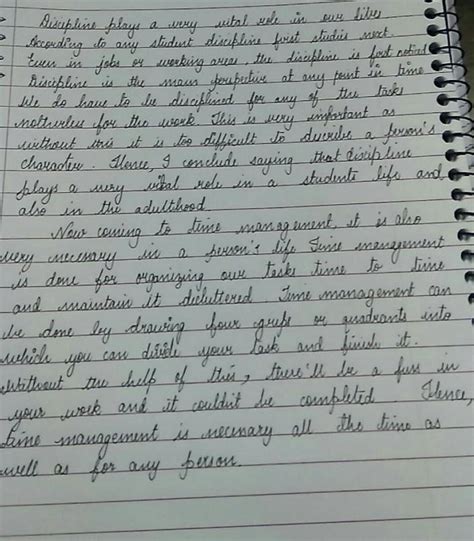 Discipline plays a very vital role in our lives
According to any student discipline first studies next.
Even in jobs or working areas, the discipline is first noticed
Discipline is the main perspective at any point in time
We do have to be disciplined for any of the tasks
for the work. This is very important as
without this it is too difficult to describe a person's
character. Hence, I conclude saying that discipline
plays a very vital role in a students life and
also in the adulthood.
Now coming to time management, it is also
very necessary in a person's life. Time management
is done for organizing our tasks time to time
and maintain it decluttered. Time management can
be done by drawing four or quadrants into
which you can divide your task and finish it.
Without the help of this, there'll be a fuss in
your work and it couldn't be completed. Hence,
time management is necessary all the time as
well as for any person.